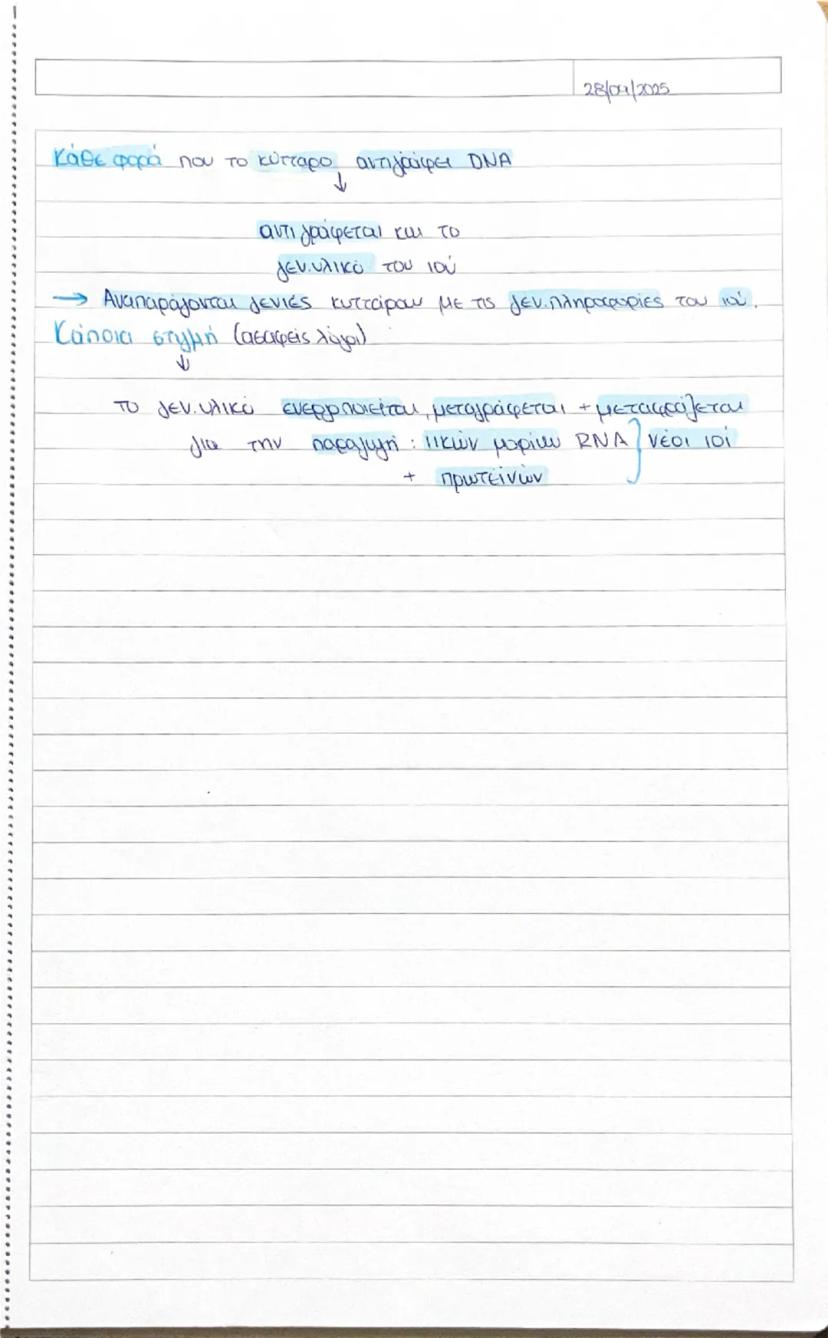 28/04/2025
Κάθε φορά που το κύτταρο αντιγράφει DNA
↓
αντιγράφεται και το
γεν.υλικό του ιού
→ Αναπαράγονται γενιές κυττάρων με τις γεν.πληροφορίες του ιού.
Κάποια στιγμή (ασαφείς λόγοι)
↓
το γεν.υλικό ενεργοποιείται, μεταγράφεται + μεταφράζεται
για την παραγωγή : ιικών μορίων RNA } νέοι ιοί
+ πρωτεϊνών